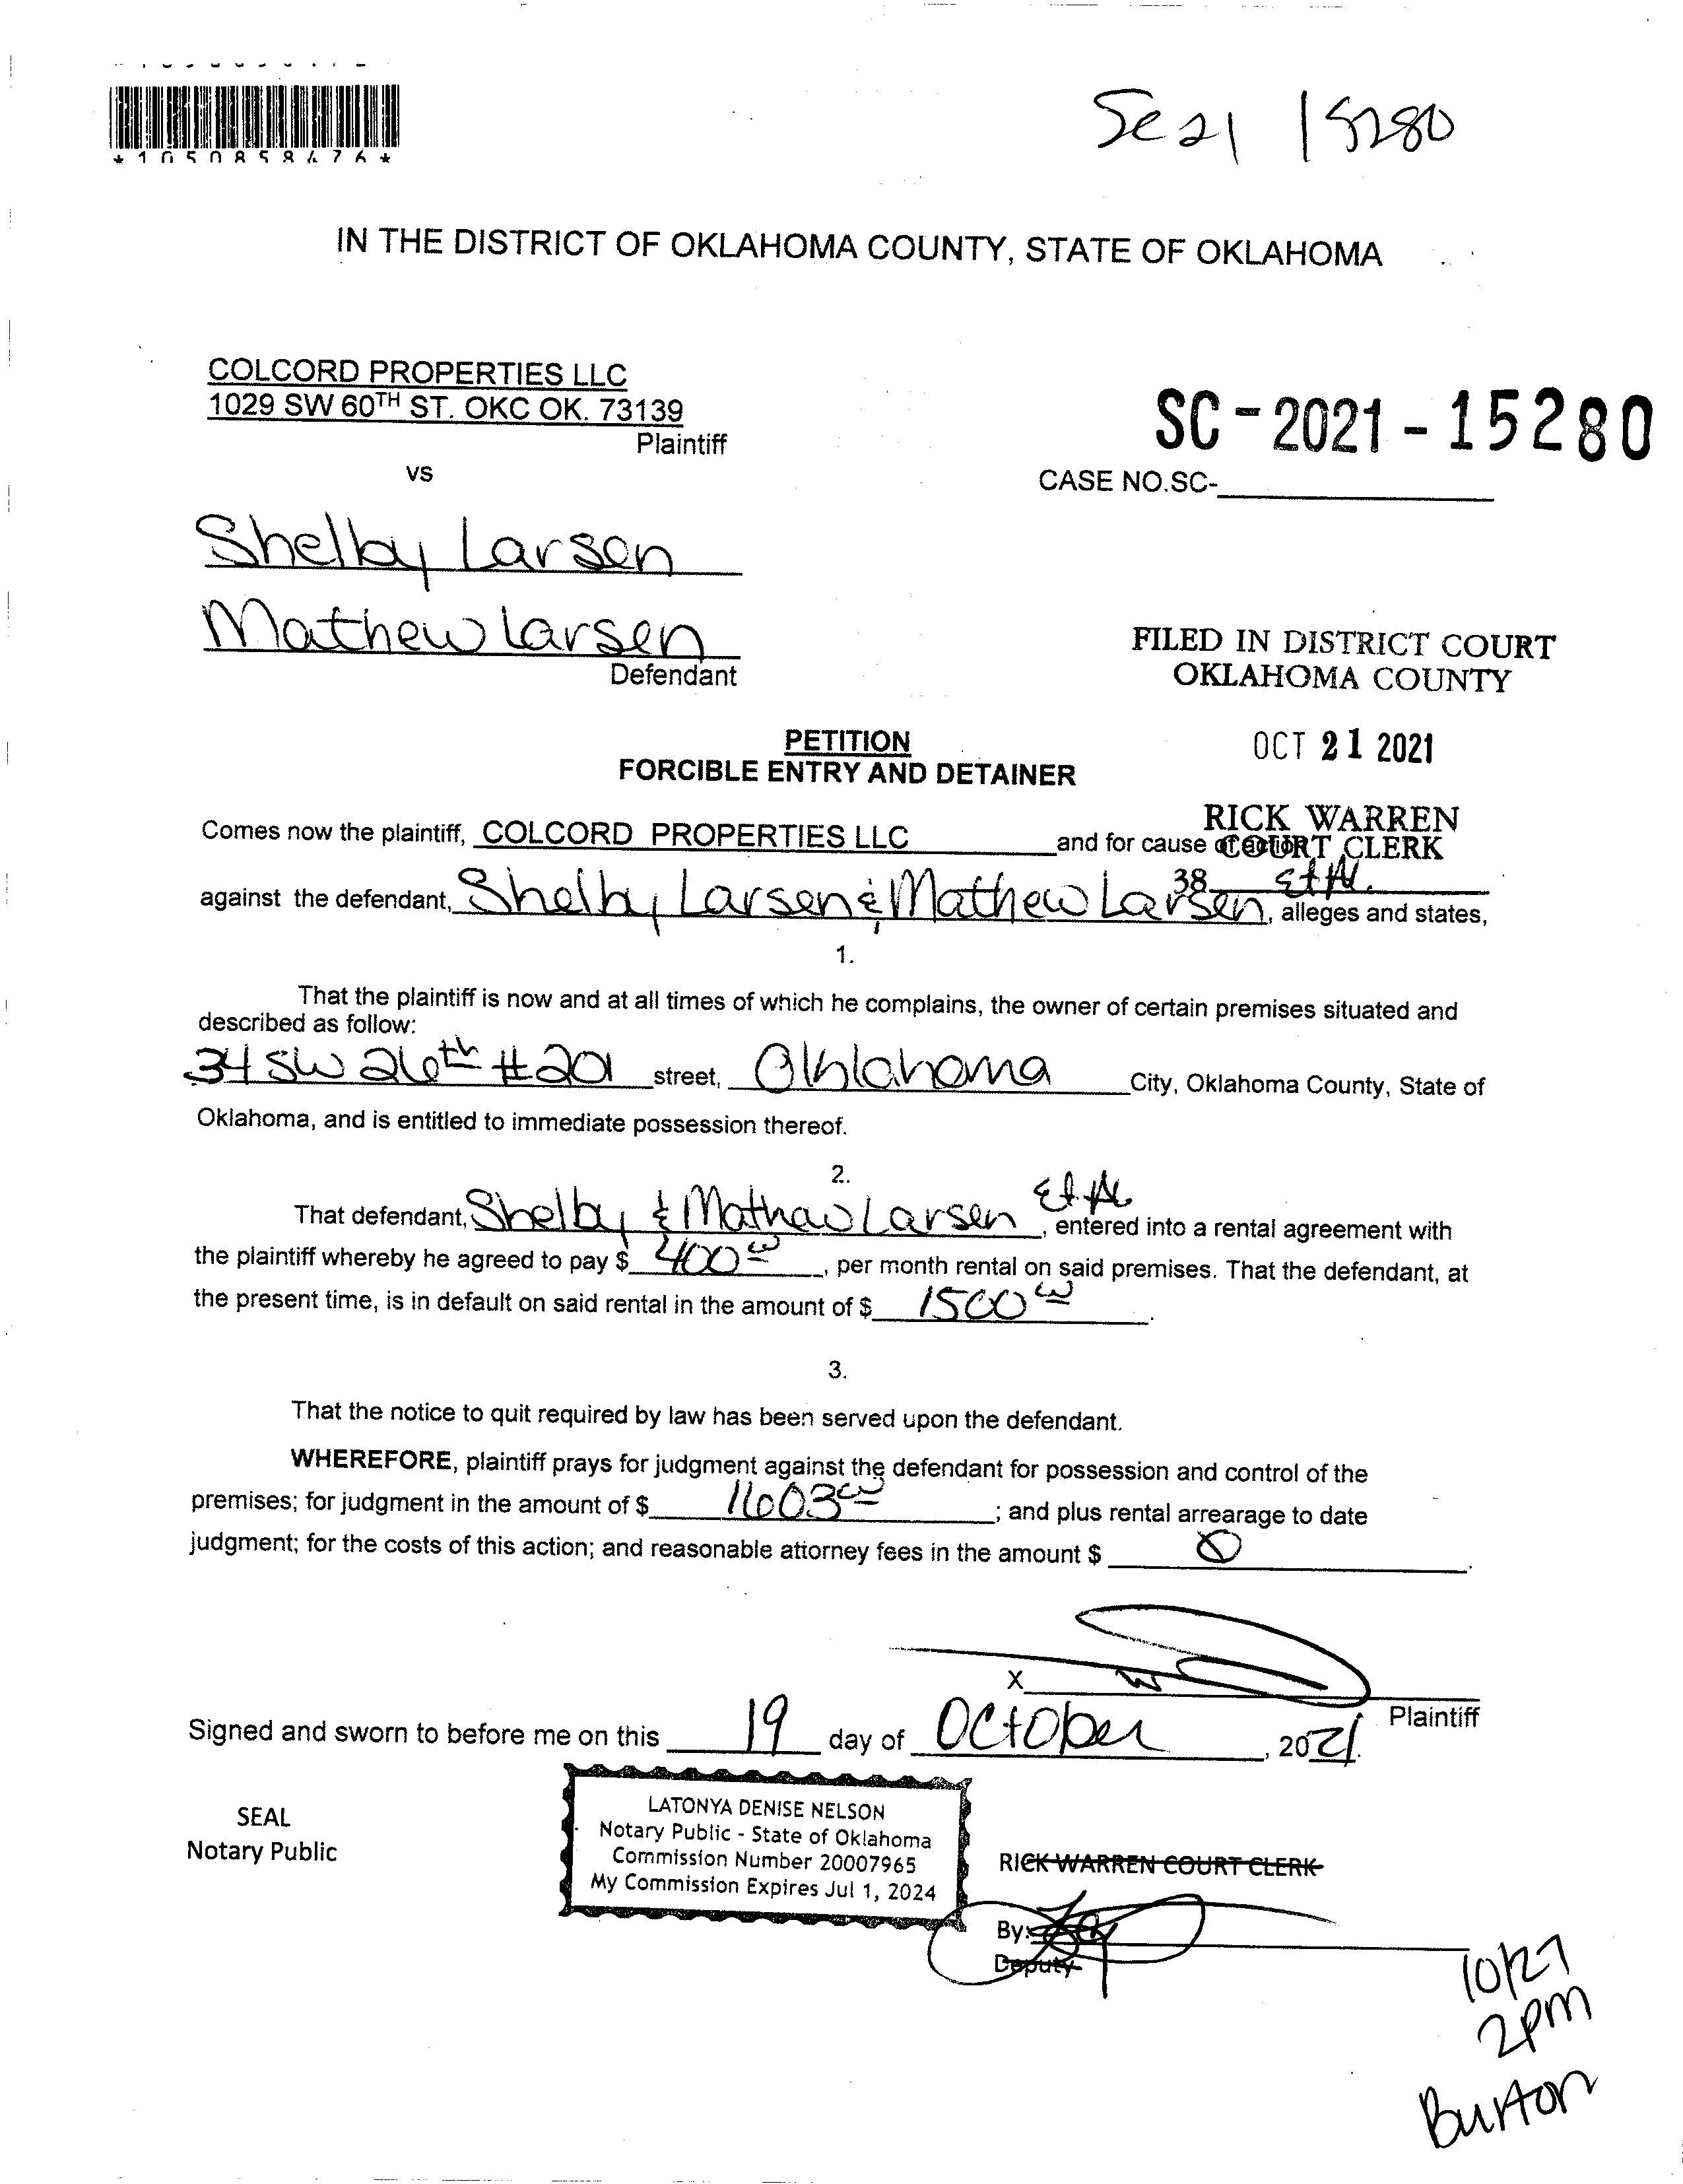 *1050858476*
SC 21 15280
IN THE DISTRICT OF OKLAHOMA COUNTY, STATE OF OKLAHOMA
COLCORD PROPERTIES LLC
1029 SW 60TH ST. OKC OK. 73139
Plaintiff
vs
SC-2021-15280
CASE NO.SC-
Shelby Larsen
Mathew Larsen
Defendant
FILED IN DISTRICT COURT
OKLAHOMA COUNTY
OCT 21 2021
PETITION
FORCIBLE ENTRY AND DETAINER
RICK WARREN
COURT CLERK
38
Comes now the plaintiff, COLCORD PROPERTIES LLC and for cause of action
against the defendant, Shelby Larsen & Mathew Larsen Et Al., alleges and states,
1.
That the plaintiff is now and at all times of which he complains, the owner of certain premises situated and
described as follow:
34 SW 26th #201 street, Oklahoma City, Oklahoma County, State of
Oklahoma, and is entitled to immediate possession thereof.
2.
That defendant, Shelby & Mathew Larsen Et. Al., entered into a rental agreement with
the plaintiff whereby he agreed to pay $ 400 00, per month rental on said premises. That the defendant, at
the present time, is in default on said rental in the amount of $ 1500 00.
3.
That the notice to quit required by law has been served upon the defendant.
WHEREFORE, plaintiff prays for judgment against the defendant for possession and control of the
premises; for judgment in the amount of $ 1603 00; and plus rental arrearage to date
judgment; for the costs of this action; and reasonable attorney fees in the amount $ 0.
X
Plaintiff
Signed and sworn to before me on this 19 day of October, 2021.
SEAL
Notary Public
LATONYA DENISE NELSON
Notary Public - State of Oklahoma
Commission Number 20007965
My Commission Expires Jul 1, 2024
RICK WARREN COURT CLERK
By:
Deputy
10/27
2pm
Burton